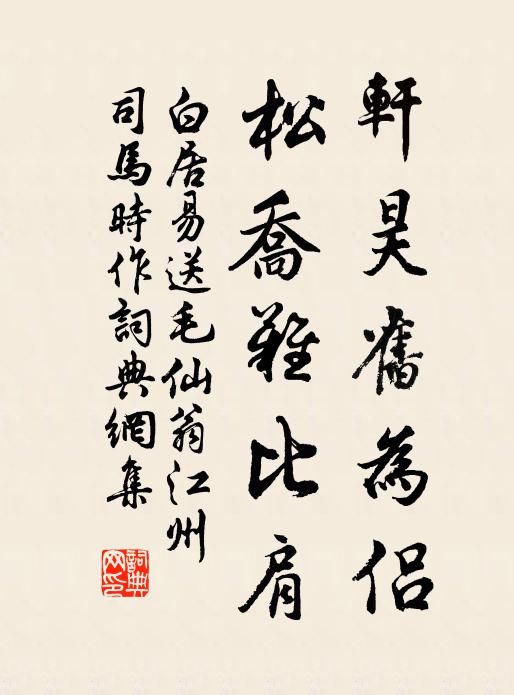 軒昊舊為侶
松喬難比肩
白居易送毛仙翁江州
司馬時作詞典網集
詞典網印